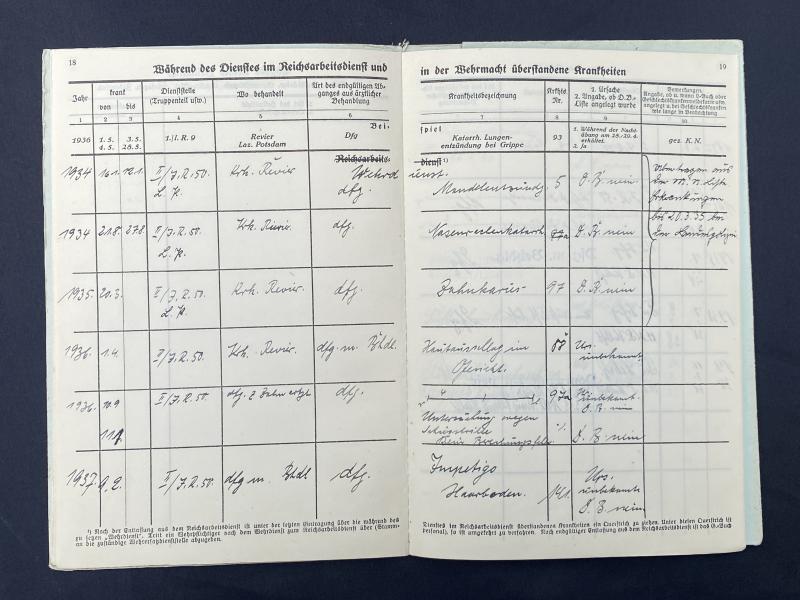 18
Während des Dienstes im Reichsarbeitsdienst und
Jahr
krank
von
bis
Dienststelle
(Truppenteil usw.)
Wo behandelt
Art des endgültigen Ab-
ganges aus ärztlicher
Behandlung
1 2 3 4 5 6
Bei-
1936
1. 5.
3. 5.
4. 5.
28. 5.
1./I. R. 9
Revier
Laz. Potsdam
Dfg
Reichsarbeits-
1934 16.1. 12.1. II/J.R.50. Krh. Revier Wehrd
dfg.
1934 21.8. 27.8. II/J.R.50. Krh. Revier dfg.
1935. 20.3. II/J.R.50. Krh. Revier. dfg.
1936. 1.4. II/J.R.50. Krh. Revier. dfg. m. Bhdl.
1936. 10.9 II/J.R.50. dfg. z Zahnarzt Dfg.
11.9.
1937. 9.2. II/J.R.50. dfg m. Bhdl dfg.
¹) Nach der Entlassung aus dem Reichsarbeitsdienst ist unter der letzten Eintragung über die während des
zu setzen „Wehrdienst". Tritt ein Wehrpflichtiger nach dem Wehrdienst zum Reichsarbeitsdienst über (Stamm-
an die zuständige Wehrersatzdienststelle abzugeben.
19
in der Wehrmacht überstandene Krankheiten
Krankheitsbezeichnung
Krkhts
Nr.
1. Ursache
2. Angabe, ob D.B.-
Liste angelegt wurde
Bemerkungen.
Angabe, ob u. wann L-Buch oder
Geschlechtskrankenmeldekarte usw.
angelegt u. bei Geschlechtskranken
wie lange in Beobachtung
7 8 9 10
spiel
Katarrh. Lungen-
entzündung bei Grippe
93
1. Während der Nacht-
übung am 28./29. 4.
erkältet.
2. ja
gez. K. N.
dienst ¹)
ienst.
Mandelentzündg. 5 D.B. nein
Übertragen aus
der
Erkrankungen
bis 20.3.35 bei
Nasenrachenkatarrh 77a D.B. nein
Zahnkaries 97 D.B. nein
Hautausschlag im
Gesicht.
Urs.
unbekannt
97a Urs.
unbekannt.
D.B. nein
Untersuchung wegen
D.B. nein
Impetigo
Haarboden. 141.
Urs.
unbekannt
D.B. nein
Dienstes im Reichsarbeitsdienst überstandenen Krankheiten ein Querstrich zu ziehen. Unter diesen Querstrich ist
personal), so ist umgekehrt zu verfahren. Nach endgültiger Entlassung aus dem Reichsarbeitsdienst ist das G.-Buch